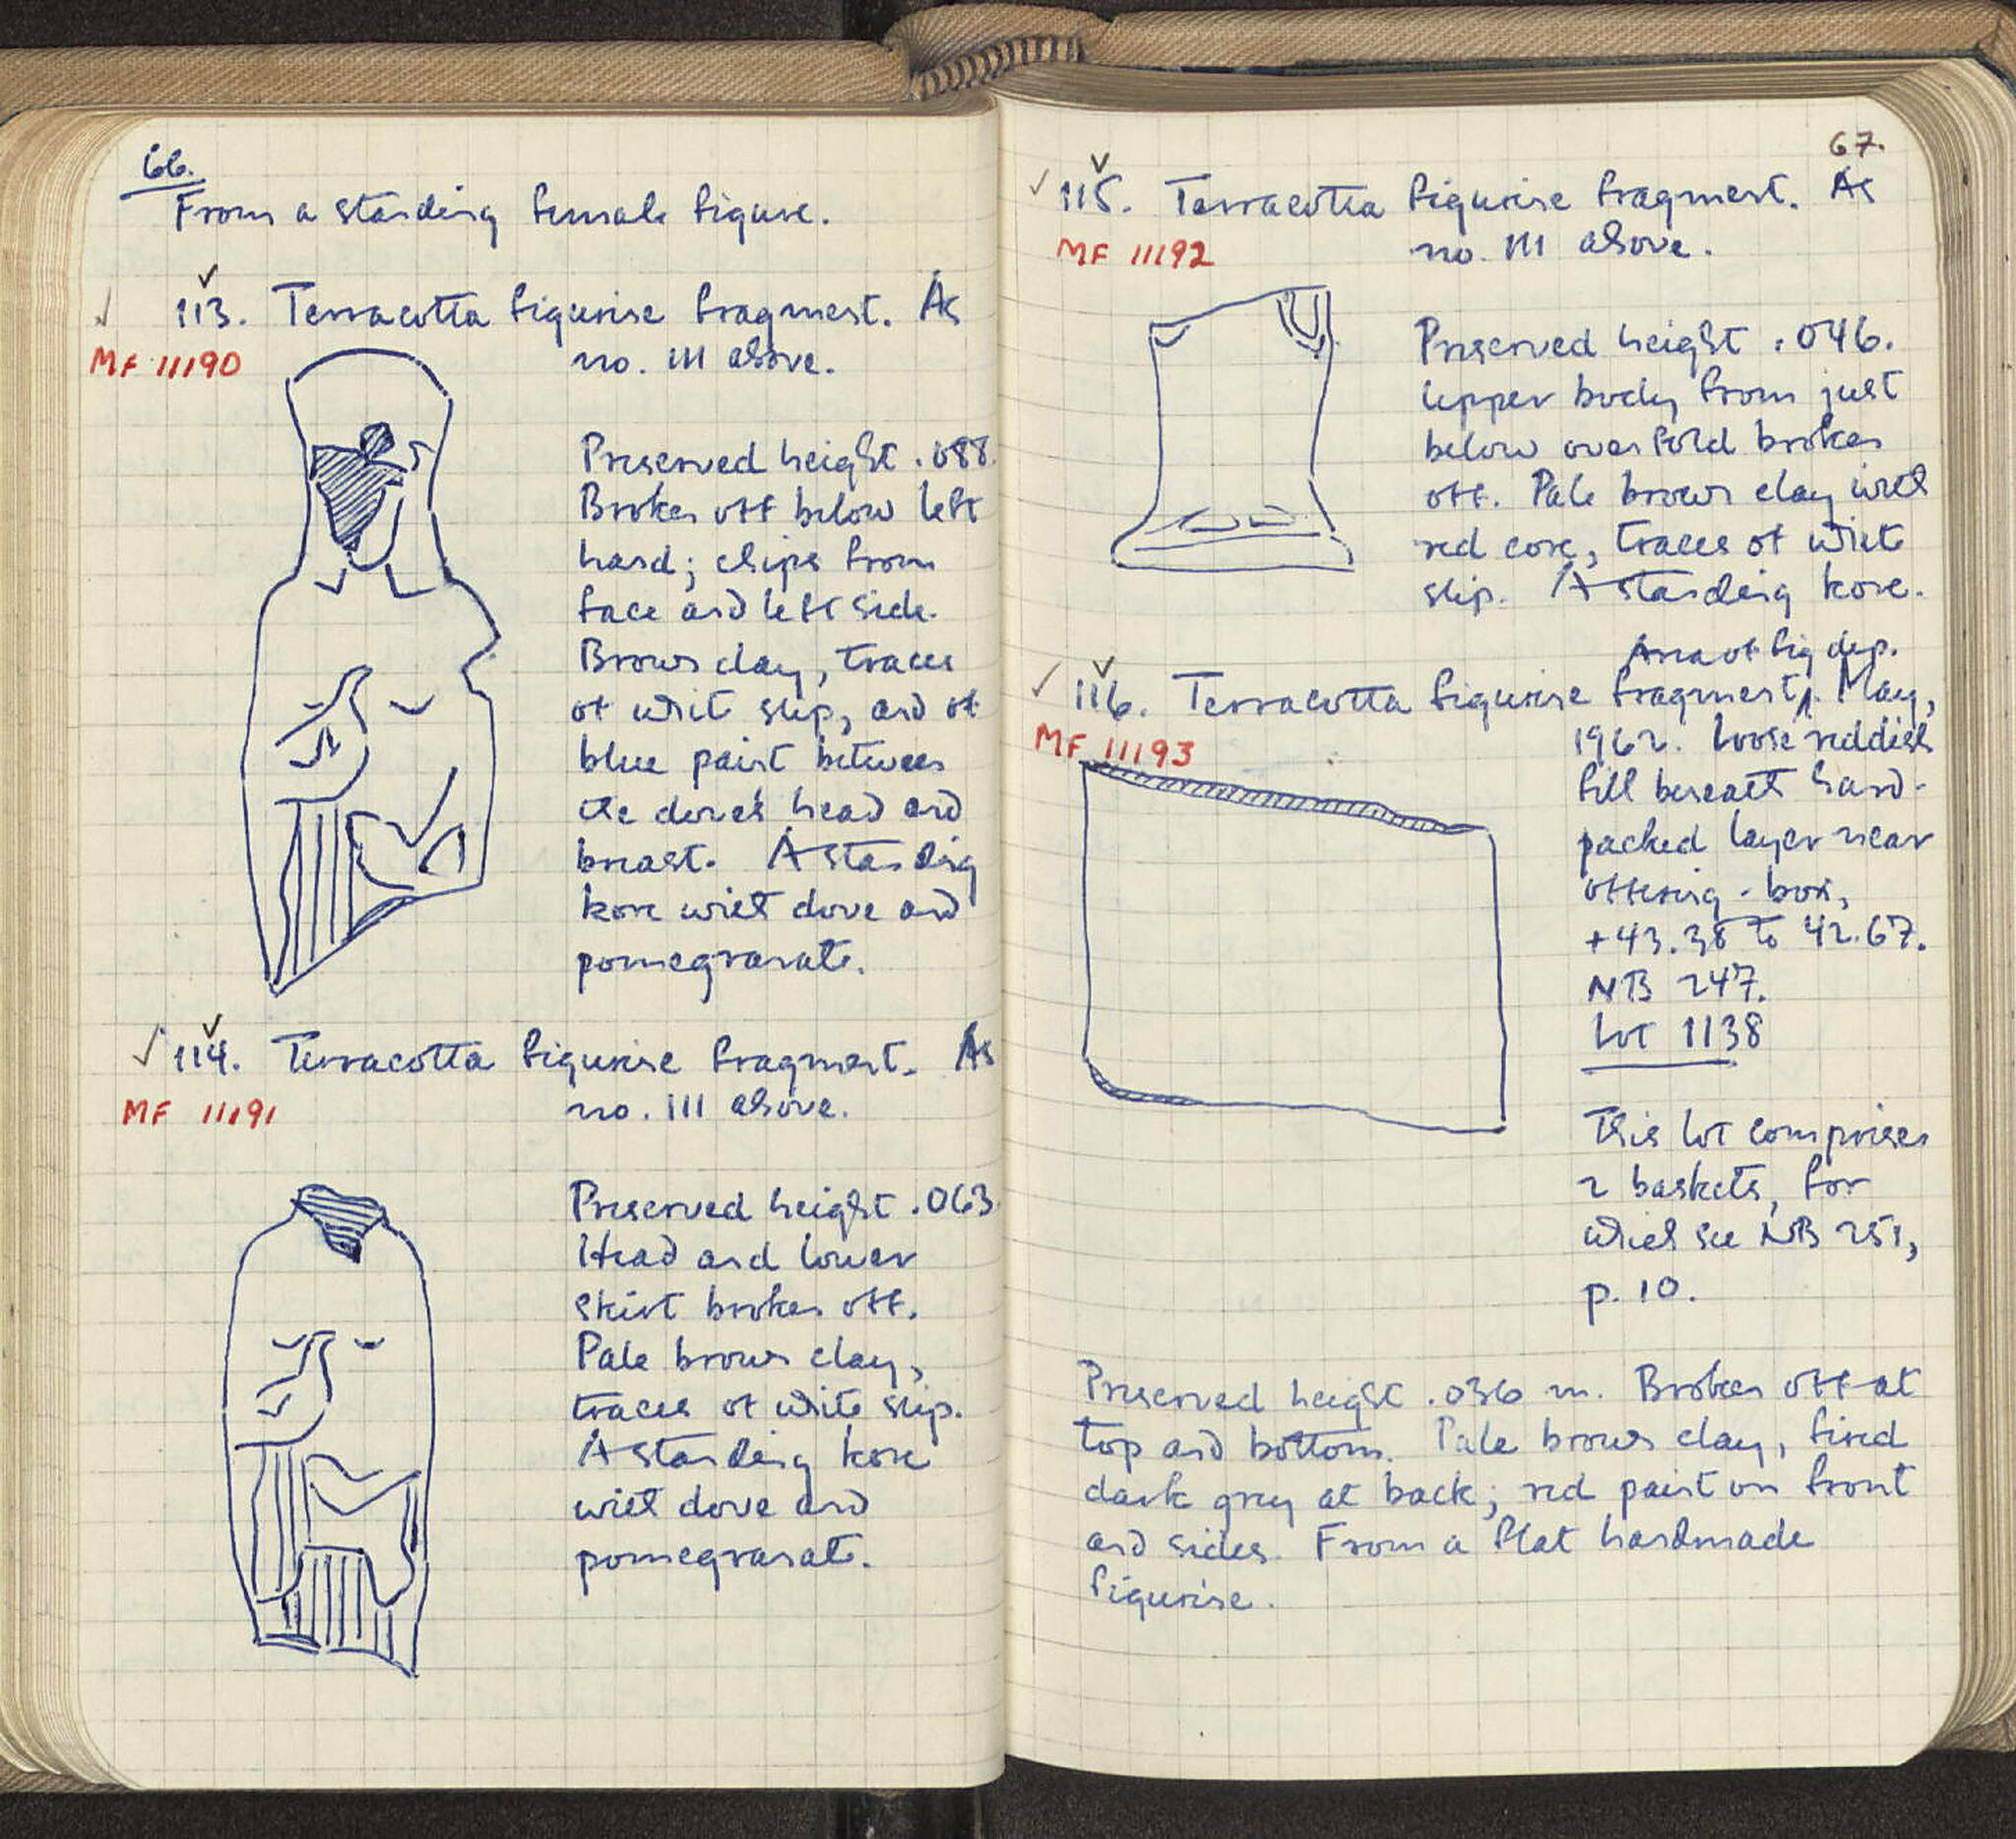 66.
From a standing female figure.
113. Terracotta figurine fragment. As
MF 11190
no. 111 above.
Preserved height .088.
Broken off below left
hand; chips from
face and left side.
Brown clay, traces
of white slip, and of
blue paint between
the dove's head and
breast. A standing
kore with dove and
pomegranate.
114. Terracotta figurine fragment. As
MF 11191
no. 111 above.
Preserved height .063.
Head and lower
skirt broken off.
Pale brown clay,
traces of white slip.
A standing kore
with dove and
pomegranate.
67.
115. Terracotta figurine fragment. As
MF 11192
no. 111 above.
Preserved height .046.
Upper body from just
below overfold broken
off. Pale brown clay with
red core, traces of white
slip. A standing kore.
Area of fig dep.
116. Terracotta figurine fragment. May,
MF 11193
1962. Loose reddish
fill beneath hard-
packed layer near
offering-box,
+43.38 to 42.67.
NB 247.
Lot 1138
This lot comprises
2 baskets, for
which see NB 251,
p. 10.
Preserved height .036 m. Broken off at
top and bottom. Pale brown clay, fired
dark grey at back; red paint on front
and sides. From a flat handmade
figurine.